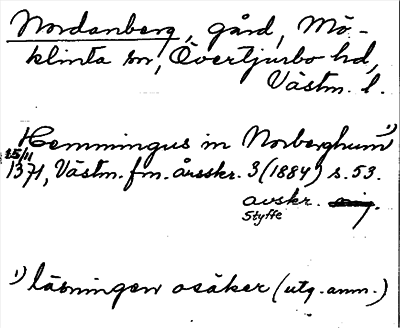 Nordanberg, gård, Mö-
klinta sn, Övertjurbo hd,
Västm. l.
Hemmingus in Norberghum 1)
25/11
1371, Västm. fm. årsskr. 3 (1884) s. 53.
avskr.
Styffe
1) läsningen osäker (utg. anm.)